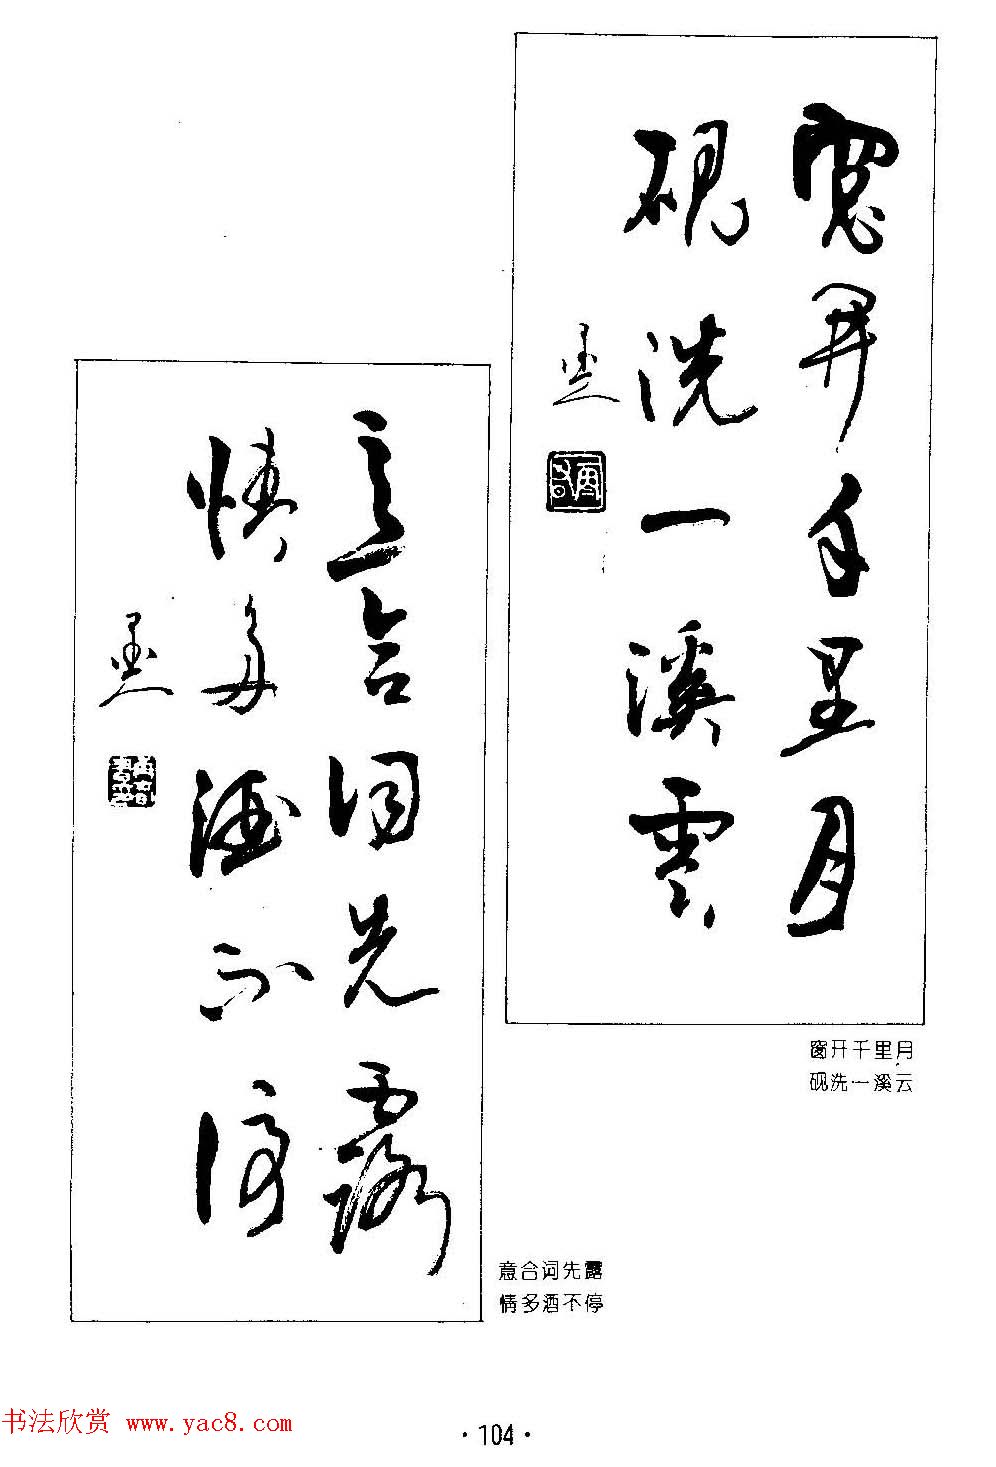 窗開千里月
硯洗一溪雲
墨
窗开千里月
砚洗一溪云
意合词先露
情多酒不停
墨
意合词先露
情多酒不停
书法欣赏 www.yac8.com
·104·